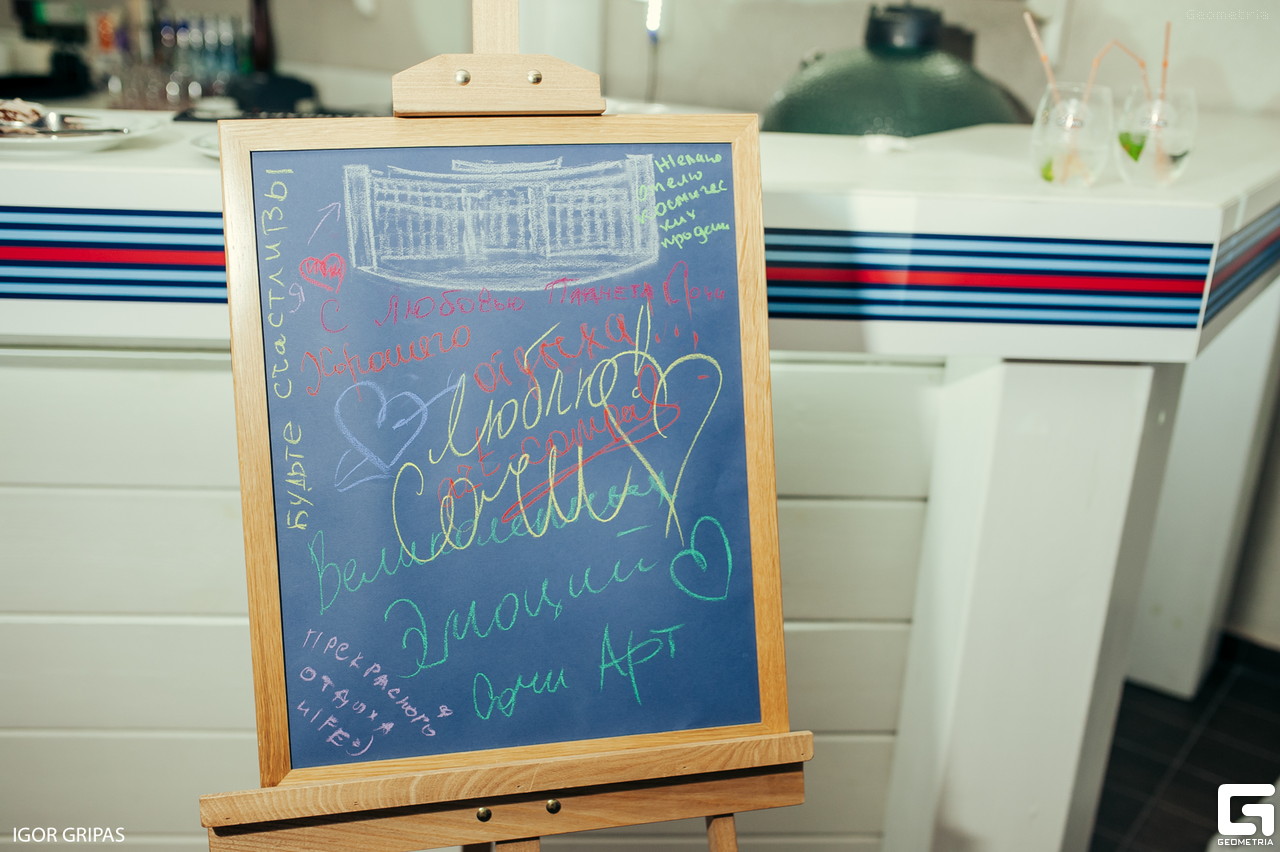 Geometria
Желаю
отелю
космичес
ких
продаж
БУДЬТЕ СЧАСТЛИВЫ
С Любовью Планета Сочи
Хорошего
отдыха!!!
Люблю!
Сочи
Великолепных
Эмоций
Сочи Арт
ПРЕКРАСНОГО
ОТДЫХА
IGOR GRIPAS
G
GEOMETRIA